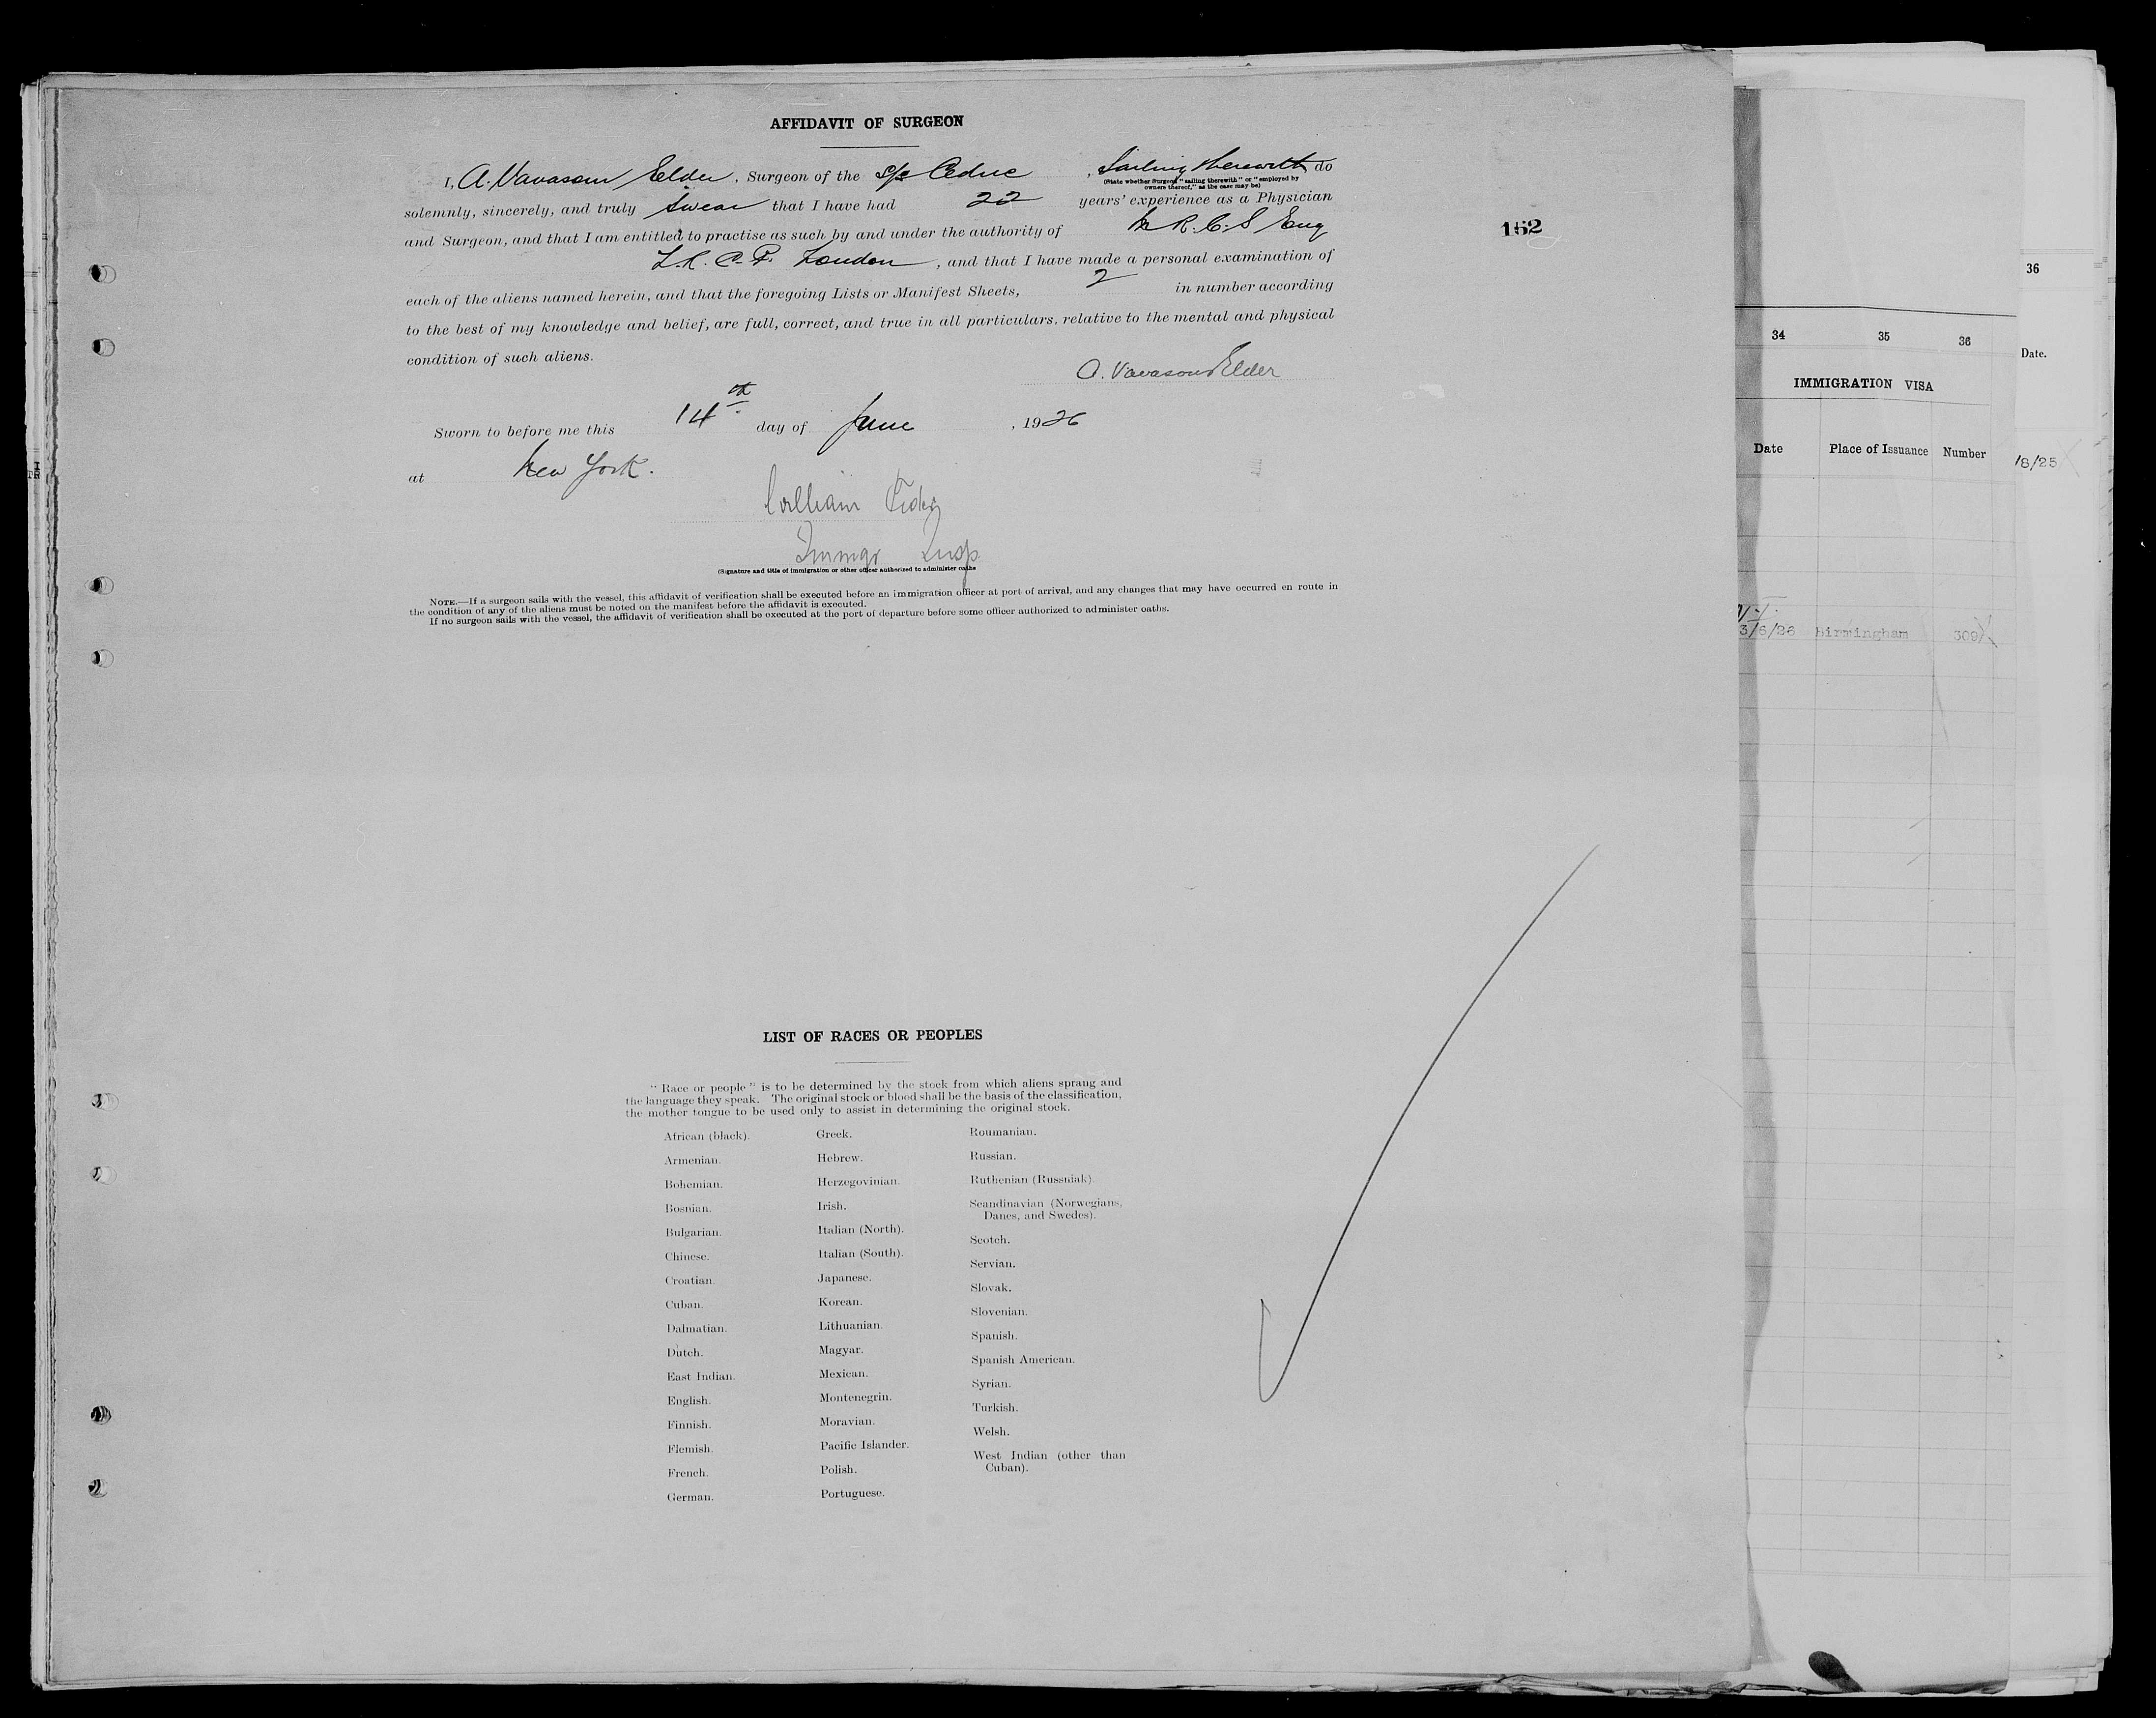 AFFIDAVIT OF SURGEON
I, A. Vavasour Elder, Surgeon of the S/S Cedric, Sailing therewith do
(State whether Surgeon "sailing therewith" or "employed by
owners thereof," as the case may be)
solemnly, sincerely, and truly swear that I have had 22 years' experience as a Physician
and Surgeon, and that I am entitled to practise as such by and under the authority of M R. C. S Eng
L. R. C. P. London, and that I have made a personal examination of
each of the aliens named herein, and that the foregoing Lists or Manifest Sheets, 2 in number according
to the best of my knowledge and belief, are full, correct, and true in all particulars, relative to the mental and physical
condition of such aliens.
A. Vavasour Elder
Sworn to before me this 14th day of June, 1926
at New York.
William
Immgr Insp.
(Signature and title of immigration or other officer authorized to administer oaths
NOTE.—If a surgeon sails with the vessel, this affidavit of verification shall be executed before an immigration officer at port of arrival, and any changes that may have occurred en route in
the condition of any of the aliens must be noted on the manifest before the affidavit is executed.
If no surgeon sails with the vessel, the affidavit of verification shall be executed at the port of departure before some officer authorized to administer oaths.
162
LIST OF RACES OR PEOPLES
"Race or people" is to be determined by the stock from which aliens sprang and
the language they speak. The original stock or blood shall be the basis of the classification,
the mother tongue to be used only to assist in determining the original stock.
African (black).
Armenian.
Bohemian.
Bosnian.
Bulgarian.
Chinese.
Croatian.
Cuban.
Dalmatian.
Dutch.
East Indian.
English.
Finnish.
Flemish.
French.
German.
Greek.
Hebrew.
Herzegovinian.
Irish.
Italian (North).
Italian (South).
Japanese.
Korean.
Lithuanian.
Magyar.
Mexican.
Montenegrin.
Moravian.
Pacific Islander.
Polish.
Portuguese.
Roumanian.
Russian.
Ruthenian (Russniak).
Scandinavian (Norwegians,
Danes, and Swedes).
Scotch.
Servian.
Slovak.
Slovenian.
Spanish.
Spanish American.
Syrian.
Turkish.
Welsh.
West Indian (other than
Cuban).
34 35 36
IMMIGRATION VISA
Date Place of Issuance Number
3/6/26 Birmingham 309
36
Date.
18/25